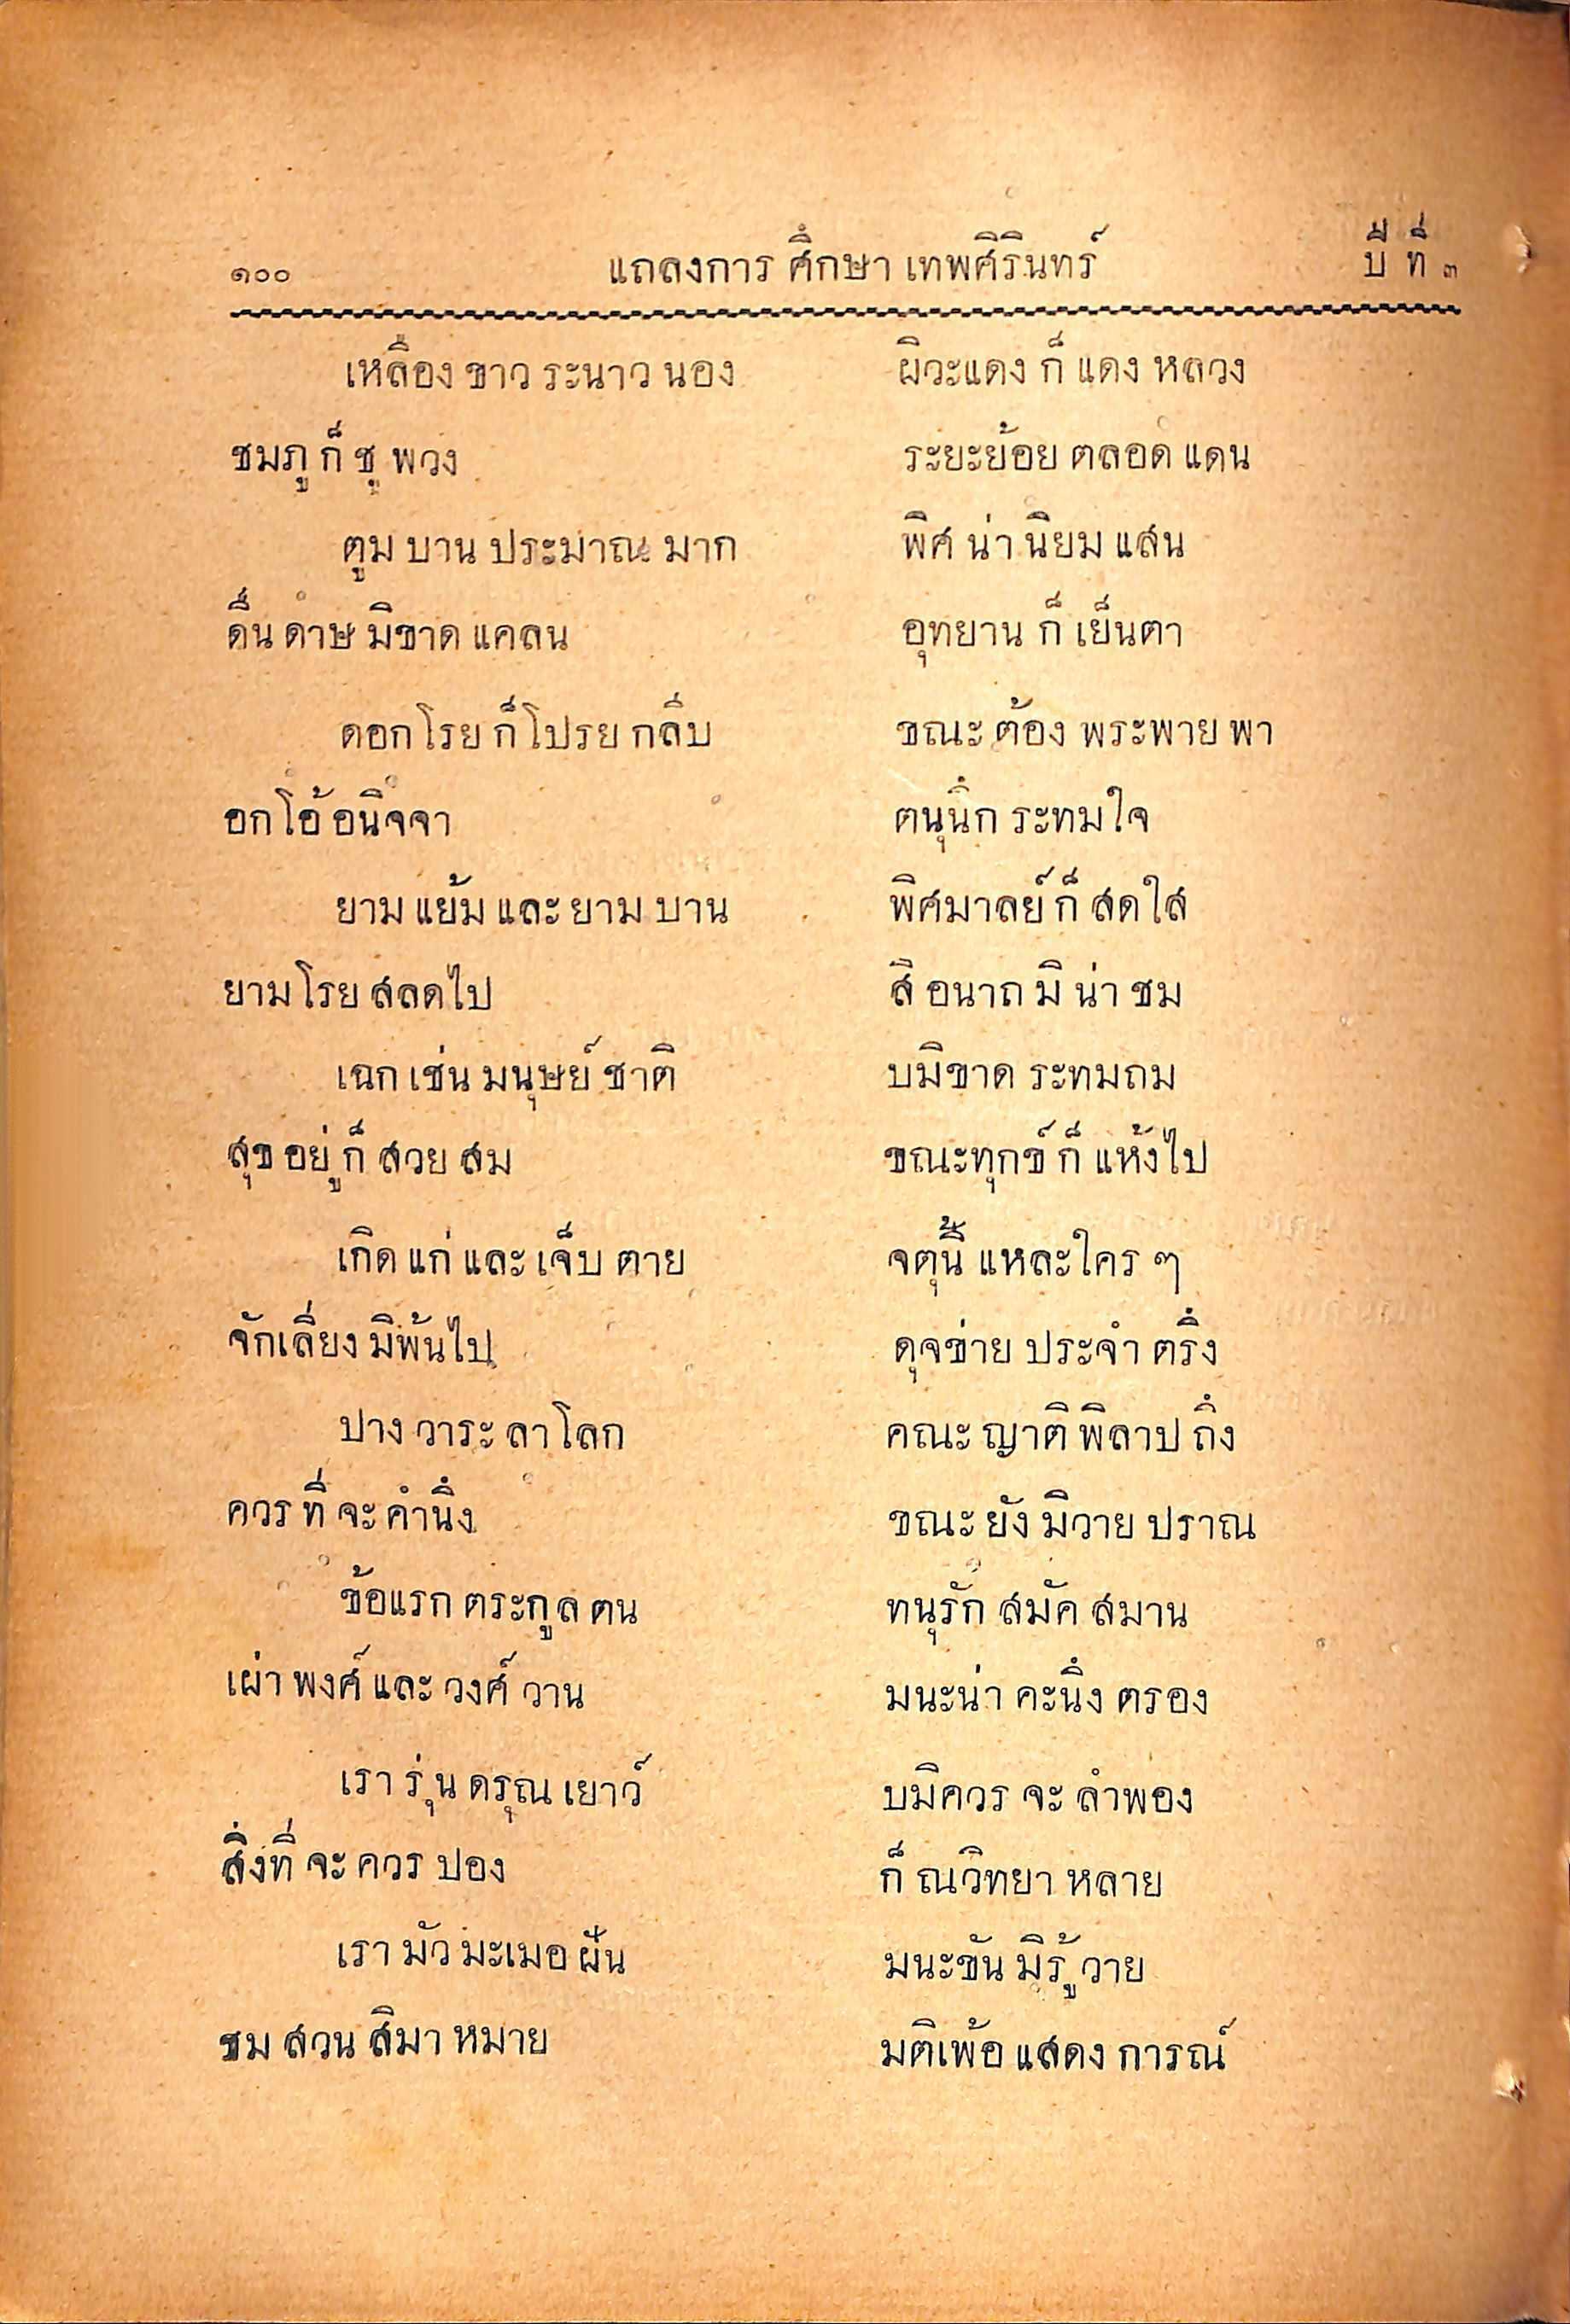 ๑๐๐ แถลงการ ศึกษา เทพศิรินทร์ ปีที่ ๓
เหลือง ขาว ระนาว นอง ผิวะแดง ก็ แดง หลวง
ชมภู ก็ ชู พวง ระยะย้อย ตลอด แดน
ตูม บาน ประมาณ มาก พิศ น่า นิยม แสน
ดื่น ดาษ มิขาด แคลน อุทยาน ก็ เย็นตา
ดอกโรย ก็โปรย กลีบ ขณะ ต้อง พระพาย พา
อกโอ้ อนิจจา ตนุนึก ระทมใจ
ยาม แย้ม และ ยาม บาน พิศมาลย์ ก็ สดใส
ยามโรย สลดไป สิ อนาถ มิ น่า ชม
เฉก เช่น มนุษย์ ชาติ บมิขาด ระทมถม
สุข อยู่ ก็ สวย สม ขณะทุกข์ ก็ แห้งไป
เกิด แก่ และ เจ็บ ตาย จตุนี้ แหละใคร ๆ
จักเลี่ยง มิพ้นไป ดุจข่าย ประจำ ตรึง
ปาง วาระ ลาโลก คณะ ญาติ พิลาป ถึง
ควร ที่ จะ คำนึง ขณะ ยัง มิวาย ปราณ
ข้อแรก ตระกูล ตน ทนุรัก สมัค สมาน
เผ่า พงศ์ และ วงศ์ วาน มนะน่า คะนึง ตรอง
เรา รุ่น ดรุณ เยาว์ บมิควร จะ ลำพอง
สิ่งที่ จะ ควร ปอง ก็ ณวิทยา หลาย
เรา มัว มะเมอ ฝัน มนะขัน มิรู้ วาย
ชม สวน สิมา หมาย มติเพ้อ แสดง การณ์